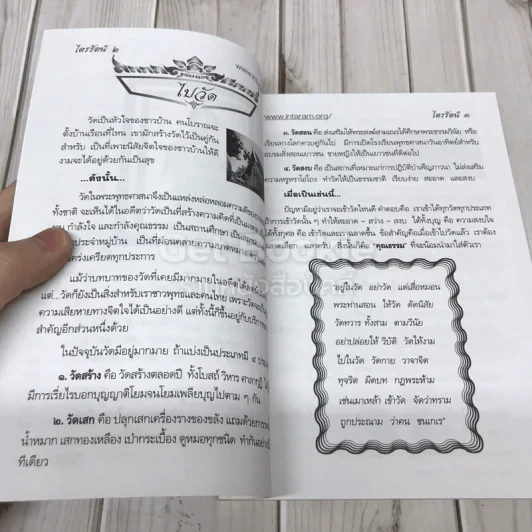 ไตรรัตน์ ๒
ไปวัด
วัดเป็นหัวใจของชาวบ้าน คนโบราณจะ
ตั้งบ้านเรือนที่ไหน เขามักสร้างวัดไว้เป็นคู่กัน
สำหรับ เป็นที่เพาะนิสัยจิตใจของชาวบ้านให้ดี
งามจะได้อยู่ด้วยกันเป็นสุข
...ดังนั้น...
วัดในพระพุทธศาสนาจึงเป็นแหล่งหล่อหลอมความ
ทั้งชาติ จะเห็นได้ในอดีตว่าวัดเป็นที่สร้างความคิดที่เป็น
กำลังใจ และกำลังคุณธรรม เป็นสถานศึกษา เป็น
ประจำหมู่บ้าน เป็นที่ผ่อนคลายความบาดหมาง
เคร่งเครียดทุกประการ
แม้ว่าบทบาทของวัดที่เคยมีมากมายในอดีต
แต่...วัดก็ยังเป็นสิ่งสำหรับเราชาวพุทธและคนไทย เพราะวัดจะเป็น
ความเสียหายทางจิตใจได้เป็นอย่างดี แต่ทั้งนี้ก็ขึ้นอยู่กับบริการ
สำคัญอีกส่วนหนึ่งด้วย
ในปัจจุบันวัดมีอยู่มากมาย ถ้าแบ่งเป็นประเภทมี ๔
๑. วัดสร้าง คือ วัดสร้างตลอดปี ทั้งโบสถ์ วิหาร ศาลา
มีการเรี่ยไรบอกบุญญาติโยมจนโยมเพลียบุญไปตาม ๆ กัน
๒. วัดเสก คือ ปลุกเสกเครื่องรางของขลัง แถมด้วยการ
น้ำหมาก เสกทองเหลือง เป่ากระเบื้อง ดูหมอทุกชนิด ทำกันอย่าง
ทีเดียว
www.intaram.org/
ไตรรัตน์ ๓
๓. วัดสอน คือ ส่งเสริมให้พระสงฆ์สามเณรได้ศึกษาพระธรรมวินัย หรือ
เรียนทางโลกควบคู่กันไป มีการเปิดโรงเรียนพุทธศาสนาวันอาทิตย์สำหรับ
อบรมสั่งสอนเยาวชน ชายหญิงให้เป็นเยาวชนที่ดีต่อไป
๔. วัดสงบ คือ เป็นสถานที่เหมาะแก่การปฏิบัติบำเพ็ญภาวนา ไม่ส่งเสริม
ความหรูหราโอ่โถง ทำวัดให้เป็นธรรมชาติ เรียบง่าย สะอาด และสงบ
เมื่อเป็นเช่นนี้...
ปัญหามีอยู่ว่าเราจะเข้าวัดไหนดี คำตอบคือ เราเข้าได้ทุกวัดทุกประเภท
ถ้าการเข้าวัดนั้น ๆ ทำให้สะอาด - สว่าง - สงบ ได้ทั้งบุญ คือ ความสงบใจ
ได้ทั้งกุศล คือ เข้าวัดและเราฉลาดขึ้น ข้อสำคัญคือเมื่อเข้าไปวัดแล้ว เราต้อง
ฉลาดเลือก ฉลาดรับ สิ่งนั้นก็คือ "คุณธรรม" ที่จะน้อมนำมาใส่ตัวเรา
อยู่ในวัด อย่าวัด แต่เสื่อหมอน
พระท่านสอน ให้วัด ดัดนิสัย
วัดทวาร ทั้งสาม ตามวินัย
อย่าปล่อยให้ วิบัติ วัดให้งาม
ไปในวัด วัดกาย วาจาจิต
ทุจริต ผิดบท กฎพระห้าม
เช่นเมาเหล้า เข้าวัด จัดว่าทราม
ถูกประณาม ว่าคน ซนเกเร"